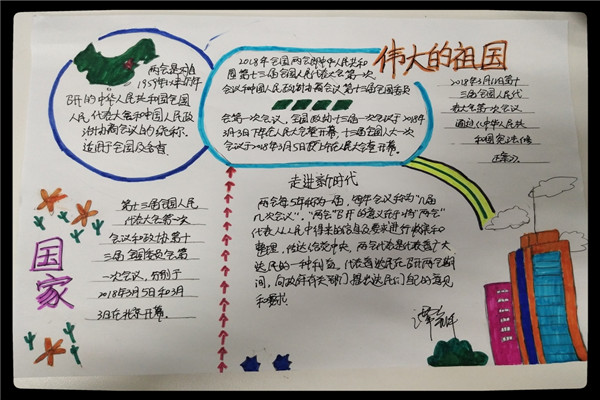 伟大的祖国
两会是对自
1959年以来历年
召开的中华人民共和国全国
人民代表大会和中国人民政
治协商会议的统称.
适用于全国及各省
2018年全国两会即中华人民共和
国第十三届全国人民代表大会第一次
会议和中国人民政治协商会议第十三届全国委员
会第一次会议,全国政协十三届一次会议于2018年
3月3日下午在人民大会堂开幕,十三届全国人大一次
会议于2018年3月5日上午在人民大会堂开幕.
2018年3月11日第十
三届全国人民代
表大会第一次会议
通过《中华人民共
和国宪法修
正案》.
走进新时代
两会每5年称为一届,每年会议称为"几届
几次会议"."两会"召开的意义在于:将"两会"
代表从人民中得来的信息及要求进行收集和
整理,传达给党中央,两会代表是代表着广大
选民的一种利益,代表着选民在召开两会期
间,向政府有关部门提出选民们自己的意见
和要求
国家
第十三届全国人民
代表大会第一次
会议和政协第十
三届全国委员会第
一次会议,分别于
2018年3月5日和3月
3日在北京开幕.